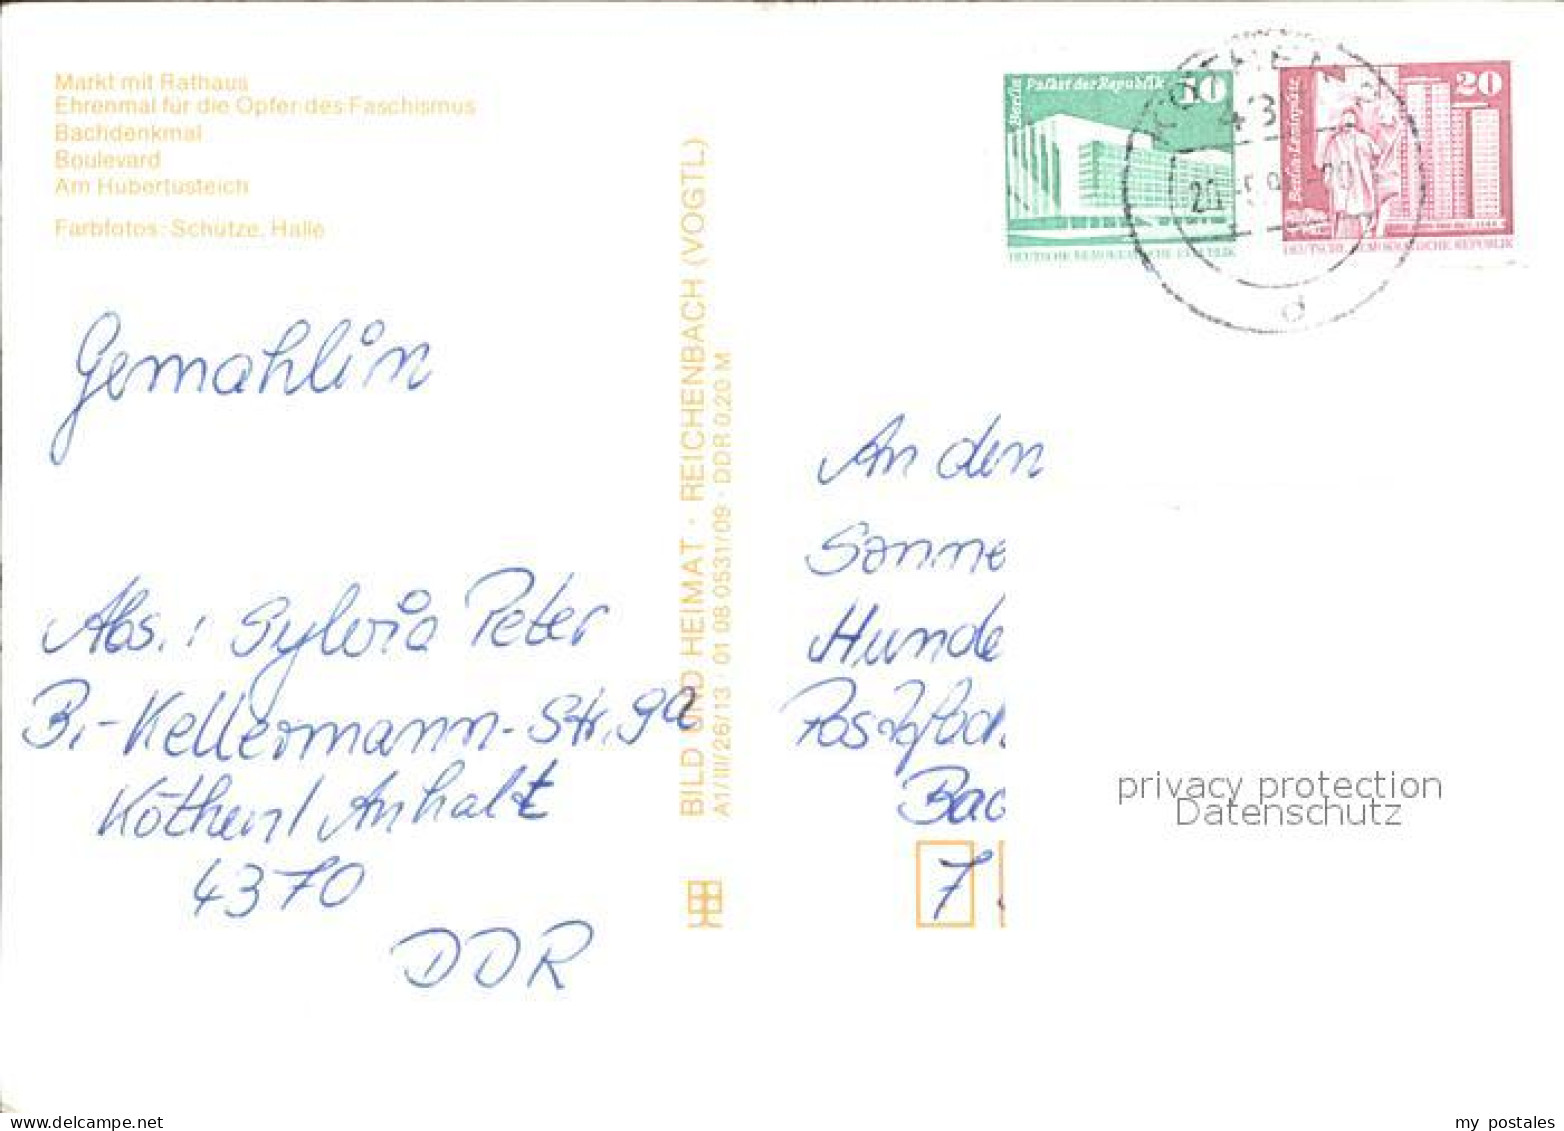 Markt mit Rathaus
Ehrenmal für die Opfer des Faschismus
Bachdenkmal
Boulevard
Am Hubertusteich
Farbfotos: Schütze, Halle
Gemahlin
Abs.: Sylvia Peter
B.-Kellermann-Str. 9a
Köthen/Anhalt
4370
DDR
BILD UND HEIMAT · REICHENBACH (VOGTL)
A1/III/26/13 · 01 08 0531/09 · DDR 0,20 M
Berlin Palast der Republik 10
DEUTSCHE DEMOKRATISCHE REPUBLIK
Berlin-Leninplatz 20
DEUTSCHE DEMOKRATISCHE REPUBLIK
KÖTHEN
d
An den
Sonne
Hunde
Postfach
Bad
7
privacy protection
Datenschutz
www.delcampe.net
my postales